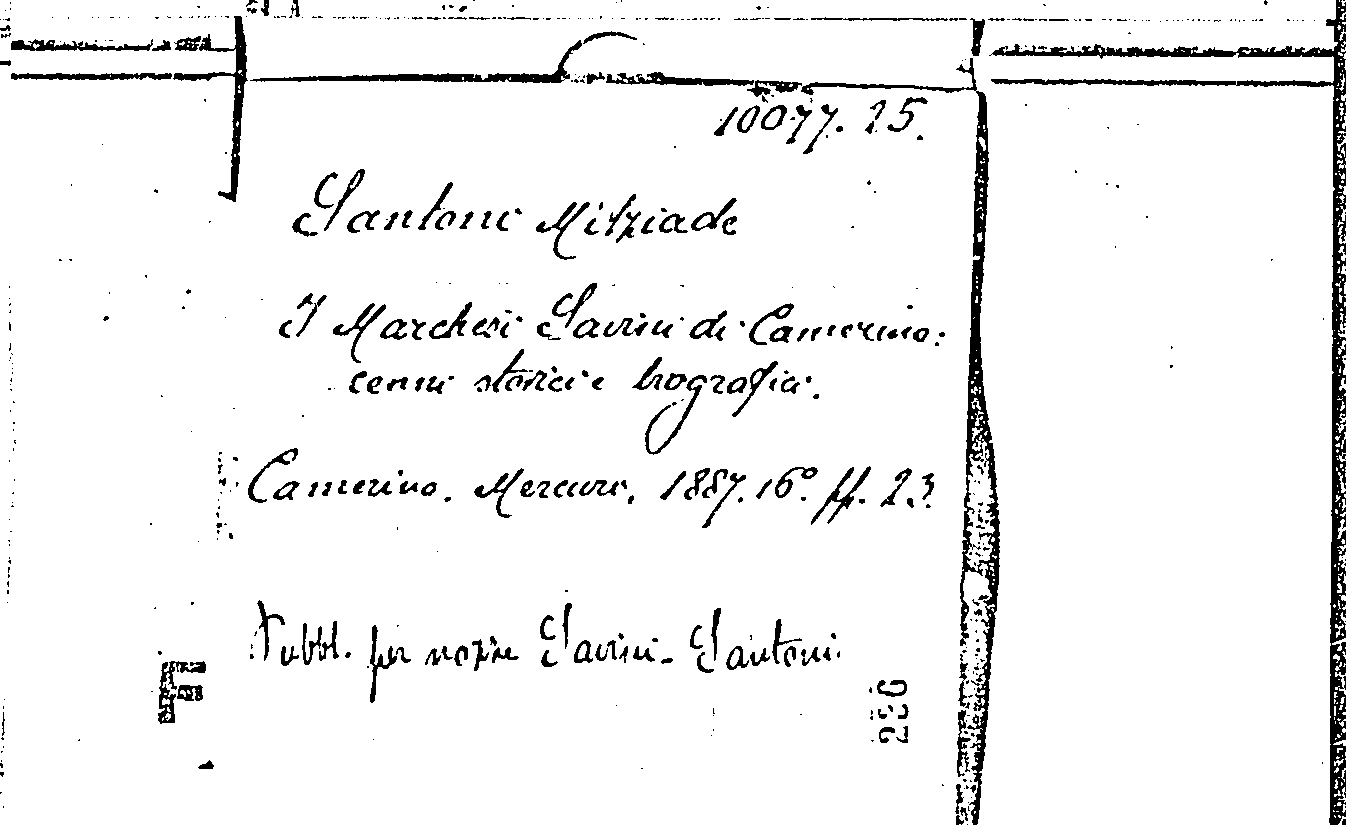 10077. 25.
Santoni Milziade
I Marchesi Savini di Camerino:
cenni storici e biografici.
Camerino. Mercuri, 1887. 16º. ff. 23.
Pubbl. per nozze Savini-Santoni.
F